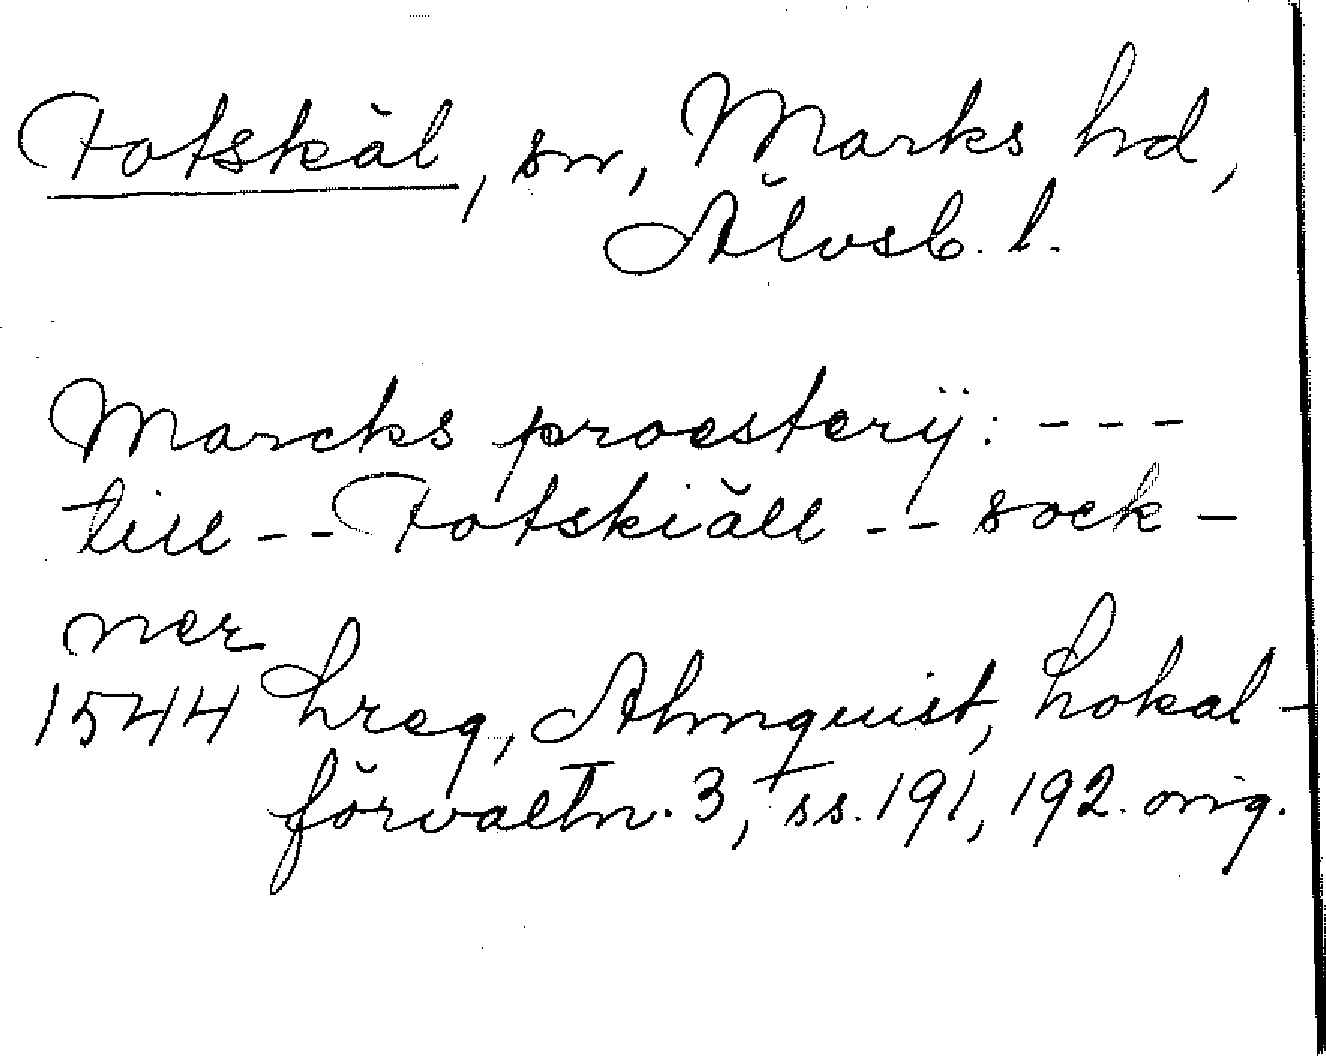 Fotskäl, sn, Marks hd,
Älvsb. l.
Marcks proesterij: - - -
till - - Fotskiäll - - sock -
ner
1544 Lreg, Almquist, Lokal -
förvaltn. 3, ss. 191, 192. orig.